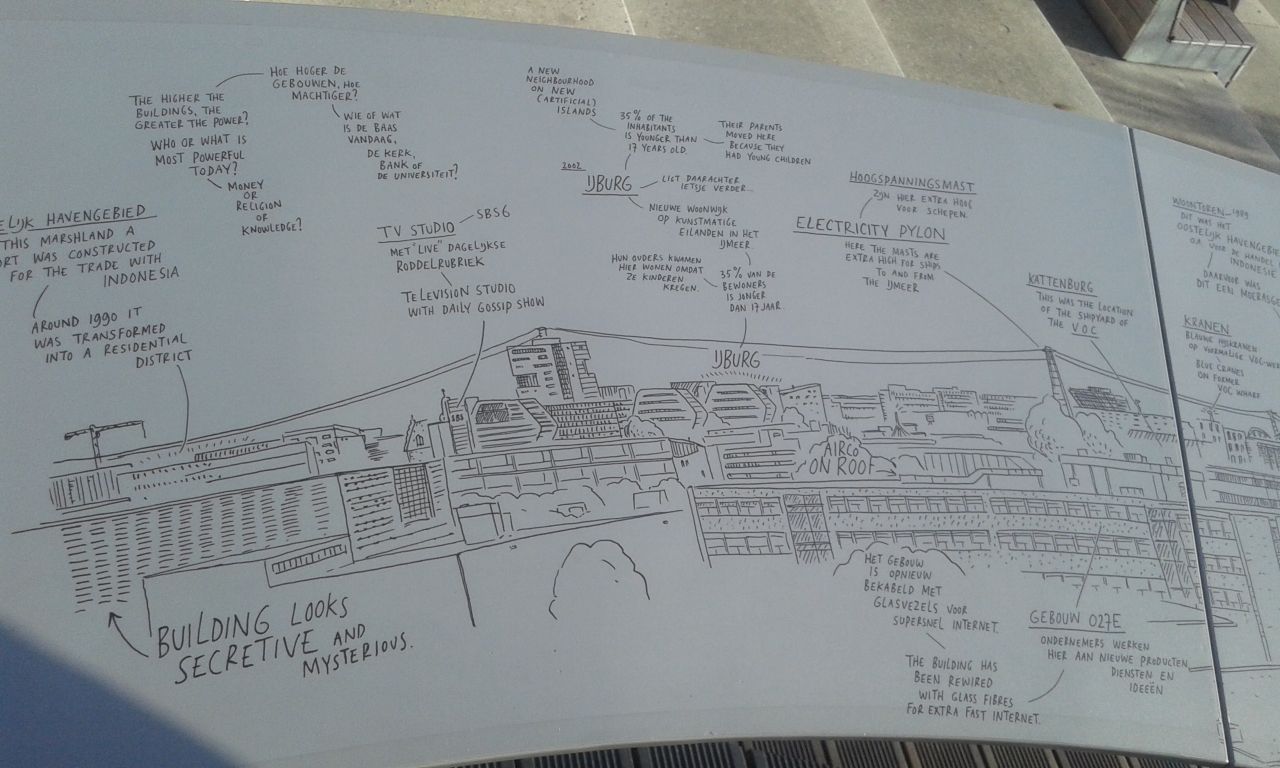 HOE HOGER DE
GEBOUWEN, HOE
MACHTIGER?
THE HIGHER THE
BUILDINGS, THE
GREATER THE POWER?
WHO OR WHAT IS
MOST POWERFUL
TODAY?
MONEY
OR
RELIGION
OR
KNOWLEDGE?
WIE OF WAT
IS DE BAAS
VANDAAG,
DE KERK,
BANK OF
DE UNIVERSITEIT?
ELIJK HAVENGEBIED
THIS MARSHLAND A
ORT WAS CONSTRUCTED
FOR THE TRADE WITH
INDONESIA
AROUND 1990 IT
WAS TRANSFORMED
INTO A RESIDENTIAL
DISTRICT
TV STUDIO
SBS6
MET "LIVE" DAGELIJKSE
RODDELRUBRIEK
TELEVISION STUDIO
WITH DAILY GOSSIP SHOW
A NEW
NEIGHBOURHOOD
ON NEW
(ARTIFICIAL)
ISLANDS
35% OF THE
INHABITANTS
IS YOUNGER THAN
17 YEARS OLD.
THEIR PARENTS
MOVED HERE
BECAUSE THEY
HAD YOUNG CHILDREN
2002
IJBURG
LIGT DAARACHTER
IETSJE VERDER...
NIEUWE WOONWIJK
OP KUNSTMATIGE
EILANDEN IN HET
IJMEER.
HUN OUDERS KWAMEN
HIER WONEN OMDAT
ZE KINDEREN
KREGEN.
35% VAN DE
BEWONERS
IS JONGER
DAN 17 JAAR.
IJBURG
HOOGSPANNINGSMAST
ZIJN HIER EXTRA HOOG
VOOR SCHEPEN.
ELECTRICITY PYLON
HERE THE MASTS ARE
EXTRA HIGH FOR SHIPS
TO AND FROM
THE IJMEER
KATTENBURG
THIS WAS THE LOCATION
OF THE SHIPYARD OF
THE V.O.C.
WOONTOREN 1989
DIT WAS HET
OOSTELIJK HAVENGEBIE
O.A. VOOR DE HANDEL
INDONESIE
DAARVOOR WAS
DIT EEN MOERASG
KRANEN
BLAUWE HIJSKRANEN
OP VOORMALIGE VOC-WE
BLUE CRANES
ON FORMER
VOC WHARF
SBS
AIRCO
ON ROOF
BUILDING LOOKS
SECRETIVE AND
MYSTERIOUS.
HET GEBOUW
IS OPNIEUW
BEKABELD MET
GLASVEZELS VOOR
SUPERSNEL INTERNET.
THE BUILDING HAS
BEEN REWIRED
WITH GLASS FIBRES
FOR EXTRA FAST INTERNET.
GEBOUW 027E
ONDERNEMERS WERKEN
HIER AAN NIEUWE PRODUCTEN,
DIENSTEN EN
IDEEËN